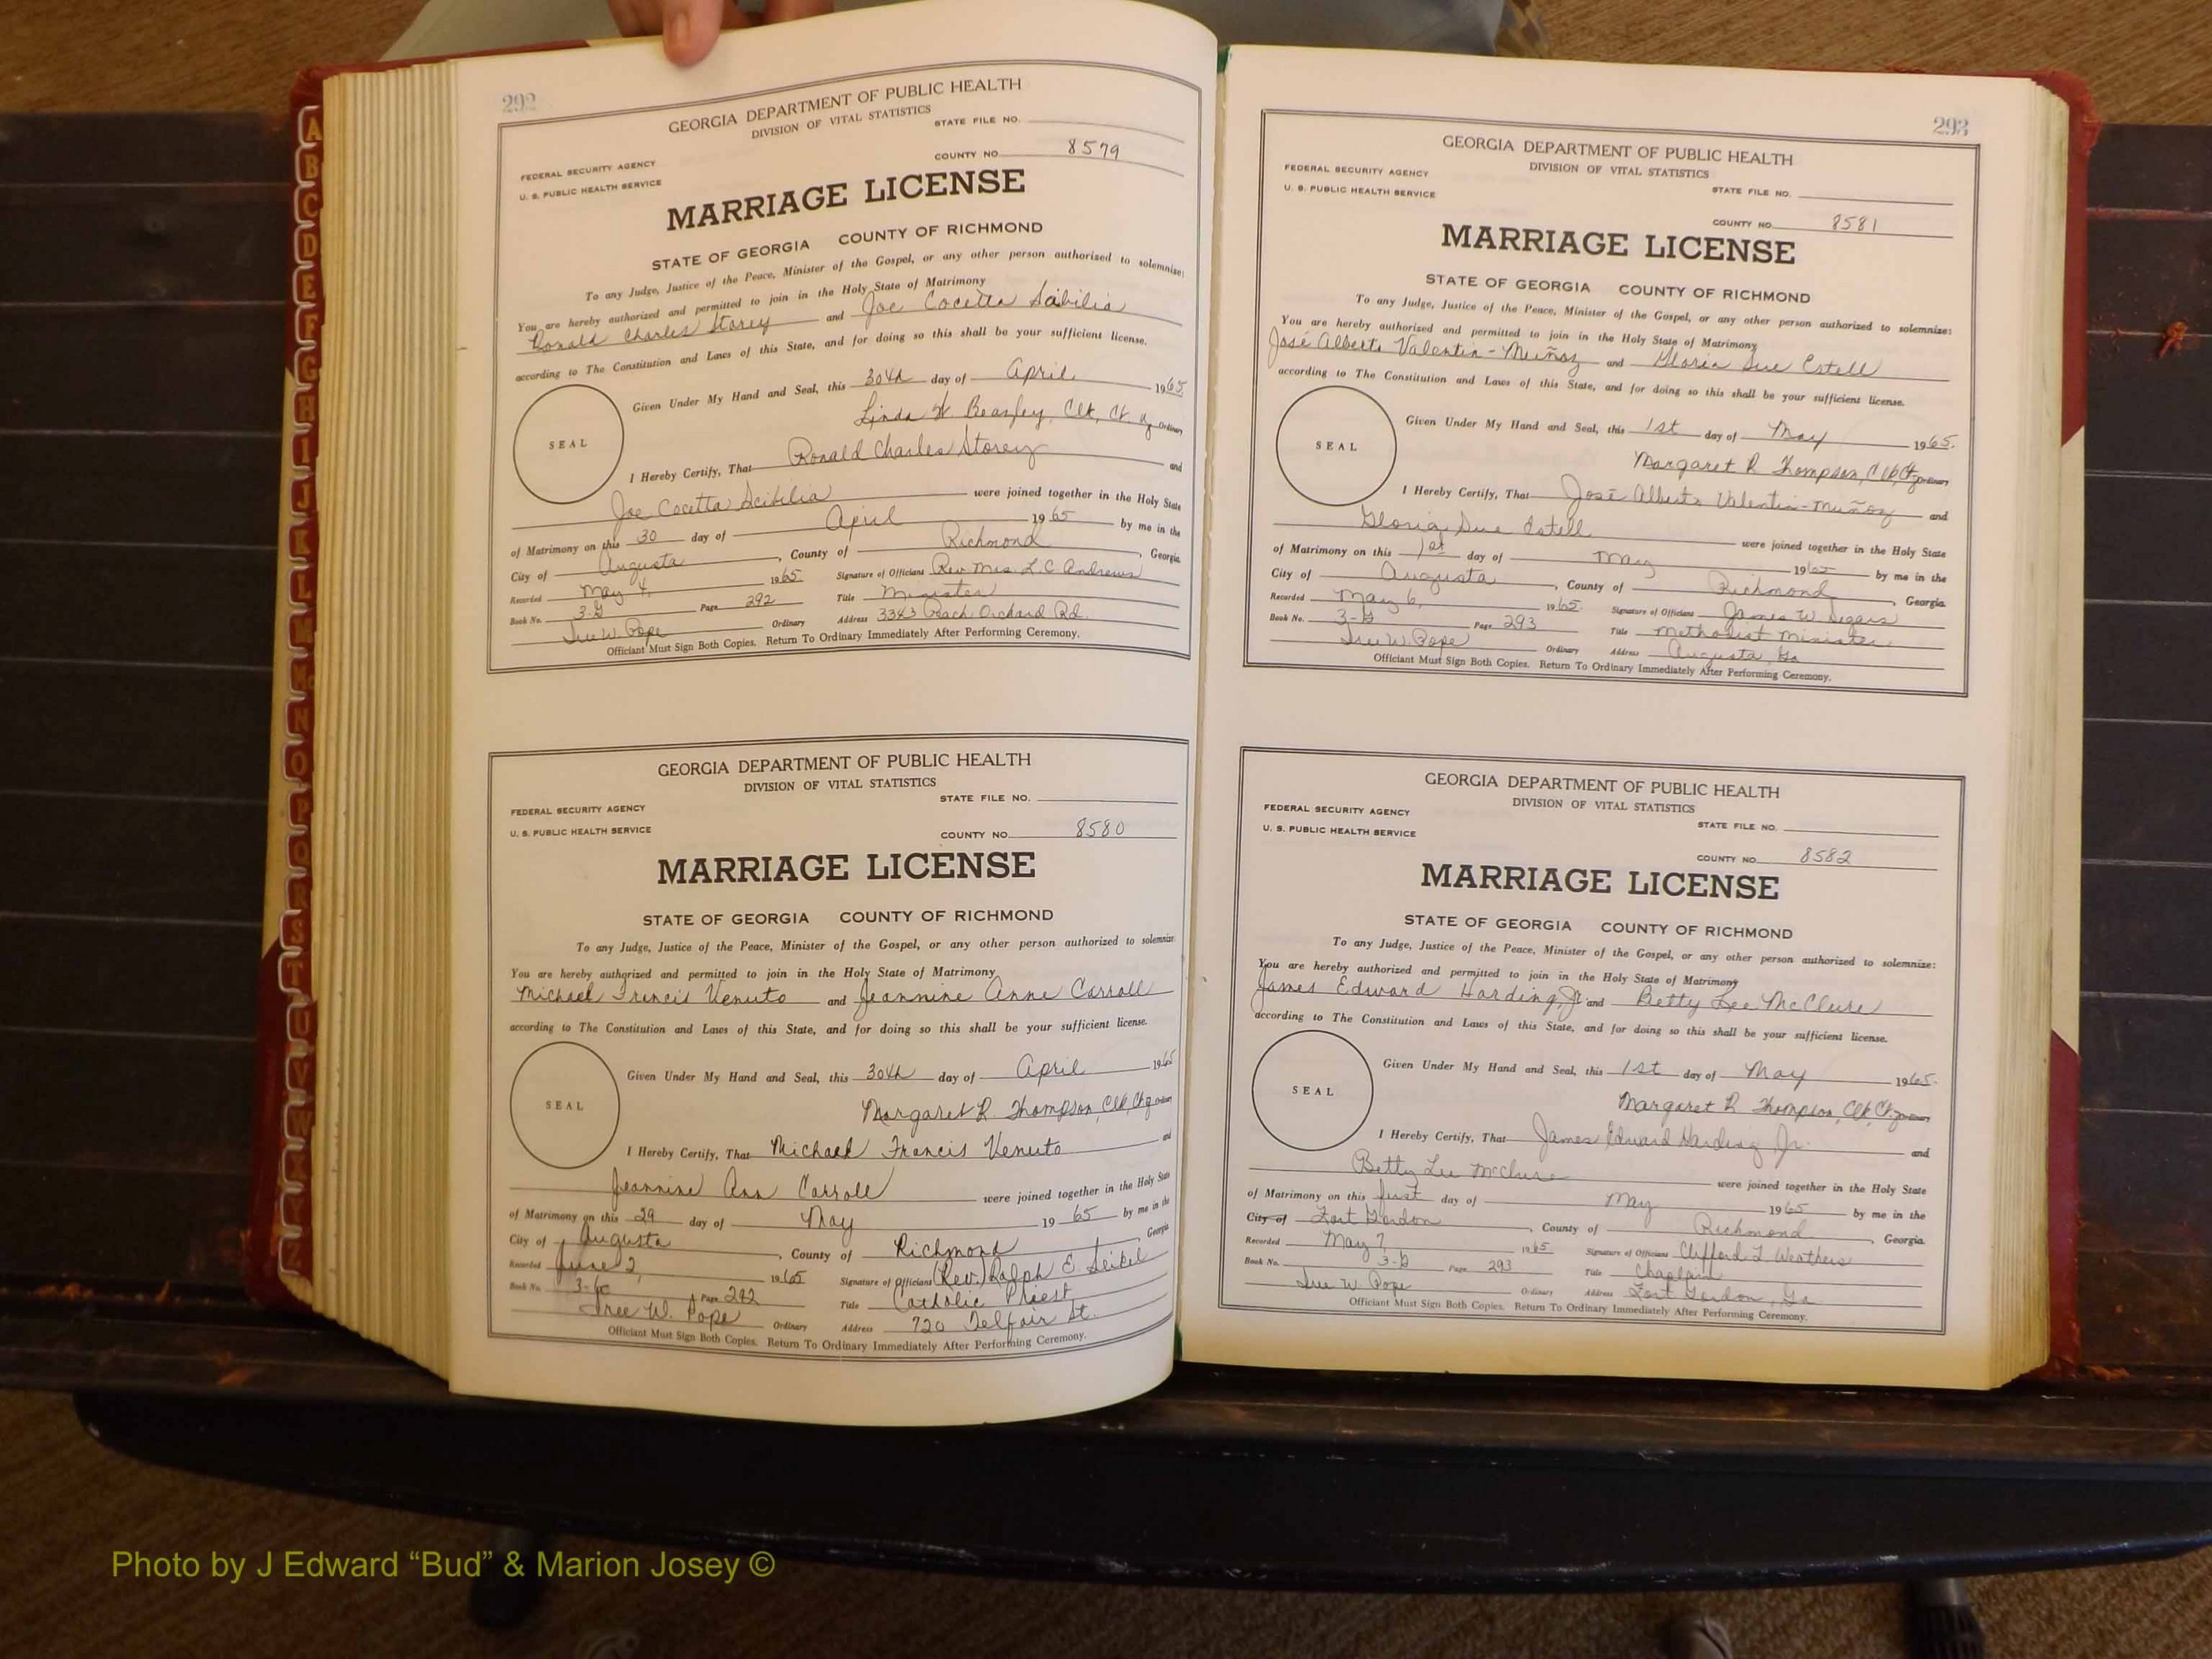 292
GEORGIA DEPARTMENT OF PUBLIC HEALTH
DIVISION OF VITAL STATISTICS
STATE FILE NO.
FEDERAL SECURITY AGENCY
COUNTY NO. 8579
U. S. PUBLIC HEALTH SERVICE
MARRIAGE LICENSE
STATE OF GEORGIA COUNTY OF RICHMOND
To any Judge, Justice of the Peace, Minister of the Gospel, or any other person authorized to solemnize:
You are hereby authorized and permitted to join in the Holy State of Matrimony
Ronald Charles Storey and Joe Cocetta Scibilia
according to The Constitution and Laws of this State, and for doing so this shall be your sufficient license.
Given Under My Hand and Seal, this 30th day of April 1965
Linda W. Beasley, Clk, Ct. Ordinary
SEAL
I Hereby Certify, That Ronald Charles Storey and
Joe Cocetta Scibilia were joined together in the Holy State
of Matrimony on this 30 day of April 1965 by me in the
City of Augusta, County of Richmond, Georgia.
Recorded May 4, 1965 Signature of Officiant Rev. Mrs. L C Andrews
Book No. 3-G Page 292 Title Minister
Sree W. Pope Ordinary Address 3343 Peach Orchard Rd.
Officiant Must Sign Both Copies. Return To Ordinary Immediately After Performing Ceremony.
GEORGIA DEPARTMENT OF PUBLIC HEALTH
DIVISION OF VITAL STATISTICS
STATE FILE NO.
FEDERAL SECURITY AGENCY
U. S. PUBLIC HEALTH SERVICE
COUNTY NO. 8580
MARRIAGE LICENSE
STATE OF GEORGIA COUNTY OF RICHMOND
To any Judge, Justice of the Peace, Minister of the Gospel, or any other person authorized to solemnize
You are hereby authorized and permitted to join in the Holy State of Matrimony
Michael Francis Venuto and Jeannine Anne Carroll
according to The Constitution and Laws of this State, and for doing so this shall be your sufficient license.
Given Under My Hand and Seal, this 30th day of April 1965
Margaret R. Thompson, Clk, Ct. Ordinary
SEAL
I Hereby Certify, That Michael Francis Venuto and
Jeannine Ann Carroll were joined together in the Holy State
of Matrimony on this 29 day of May 1965 by me in the
City of Augusta, County of Richmond Georgia
Recorded June 2, 1965 Signature of Officiant (Rev.) Ralph E. Seikel
Book No. 3-G Page 292 Title Catholic Priest
Sree W. Pope Ordinary Address 720 Telfair St.
Officiant Must Sign Both Copies. Return To Ordinary Immediately After Performing Ceremony.
293
GEORGIA DEPARTMENT OF PUBLIC HEALTH
DIVISION OF VITAL STATISTICS
FEDERAL SECURITY AGENCY
U. S. PUBLIC HEALTH SERVICE
STATE FILE NO.
COUNTY NO. 8581
MARRIAGE LICENSE
STATE OF GEORGIA COUNTY OF RICHMOND
To any Judge, Justice of the Peace, Minister of the Gospel, or any other person authorized to solemnize:
You are hereby authorized and permitted to join in the Holy State of Matrimony
José Alberto Valentin-Muñoz and Gloria Sue Estell
according to The Constitution and Laws of this State, and for doing so this shall be your sufficient license.
Given Under My Hand and Seal, this 1st day of May 1965.
Margaret R. Thompson, Clk, Ct. Ordinary
SEAL
I Hereby Certify, That José Alberto Valentin-Muñoz and
Gloria Sue Estell were joined together in the Holy State
of Matrimony on this 1st day of May 1965 by me in the
City of Augusta, County of Richmond, Georgia.
Recorded May 6, 1965. Signature of Officiant James W. Segars
Book No. 3-G Page 293 Title Methodist Minister
Sree W. Pope Ordinary Address Augusta, Ga
Officiant Must Sign Both Copies. Return To Ordinary Immediately After Performing Ceremony.
GEORGIA DEPARTMENT OF PUBLIC HEALTH
DIVISION OF VITAL STATISTICS
FEDERAL SECURITY AGENCY
STATE FILE NO.
U. S. PUBLIC HEALTH SERVICE
COUNTY NO. 8582
MARRIAGE LICENSE
STATE OF GEORGIA COUNTY OF RICHMOND
To any Judge, Justice of the Peace, Minister of the Gospel, or any other person authorized to solemnize:
You are hereby authorized and permitted to join in the Holy State of Matrimony
James Edward Harding, Jr. and Betty Lee McClure
according to The Constitution and Laws of this State, and for doing so this shall be your sufficient license.
Given Under My Hand and Seal, this 1st day of May 1965.
Margaret R. Thompson, Clk, Ct. Ordinary
SEAL
I Hereby Certify, That James Edward Harding Jr. and
Betty Lee McClure were joined together in the Holy State
of Matrimony on this first day of May 1965 by me in the
City of Fort Gordon, County of Richmond, Georgia.
Recorded May 7 1965 Signature of Officiant Clifford L Weathers
Book No. 3-G Page 293 Title Chaplain
Sree W. Pope Ordinary Address Fort Gordon, Ga
Officiant Must Sign Both Copies. Return To Ordinary Immediately After Performing Ceremony.
A
B
C
D
E
F
G
H
I
J
K
L
M
Mc
N
O
P
Q
R
S
T
U
V
W
X
Y
Z
Photo by J Edward “Bud” & Marion Josey ©